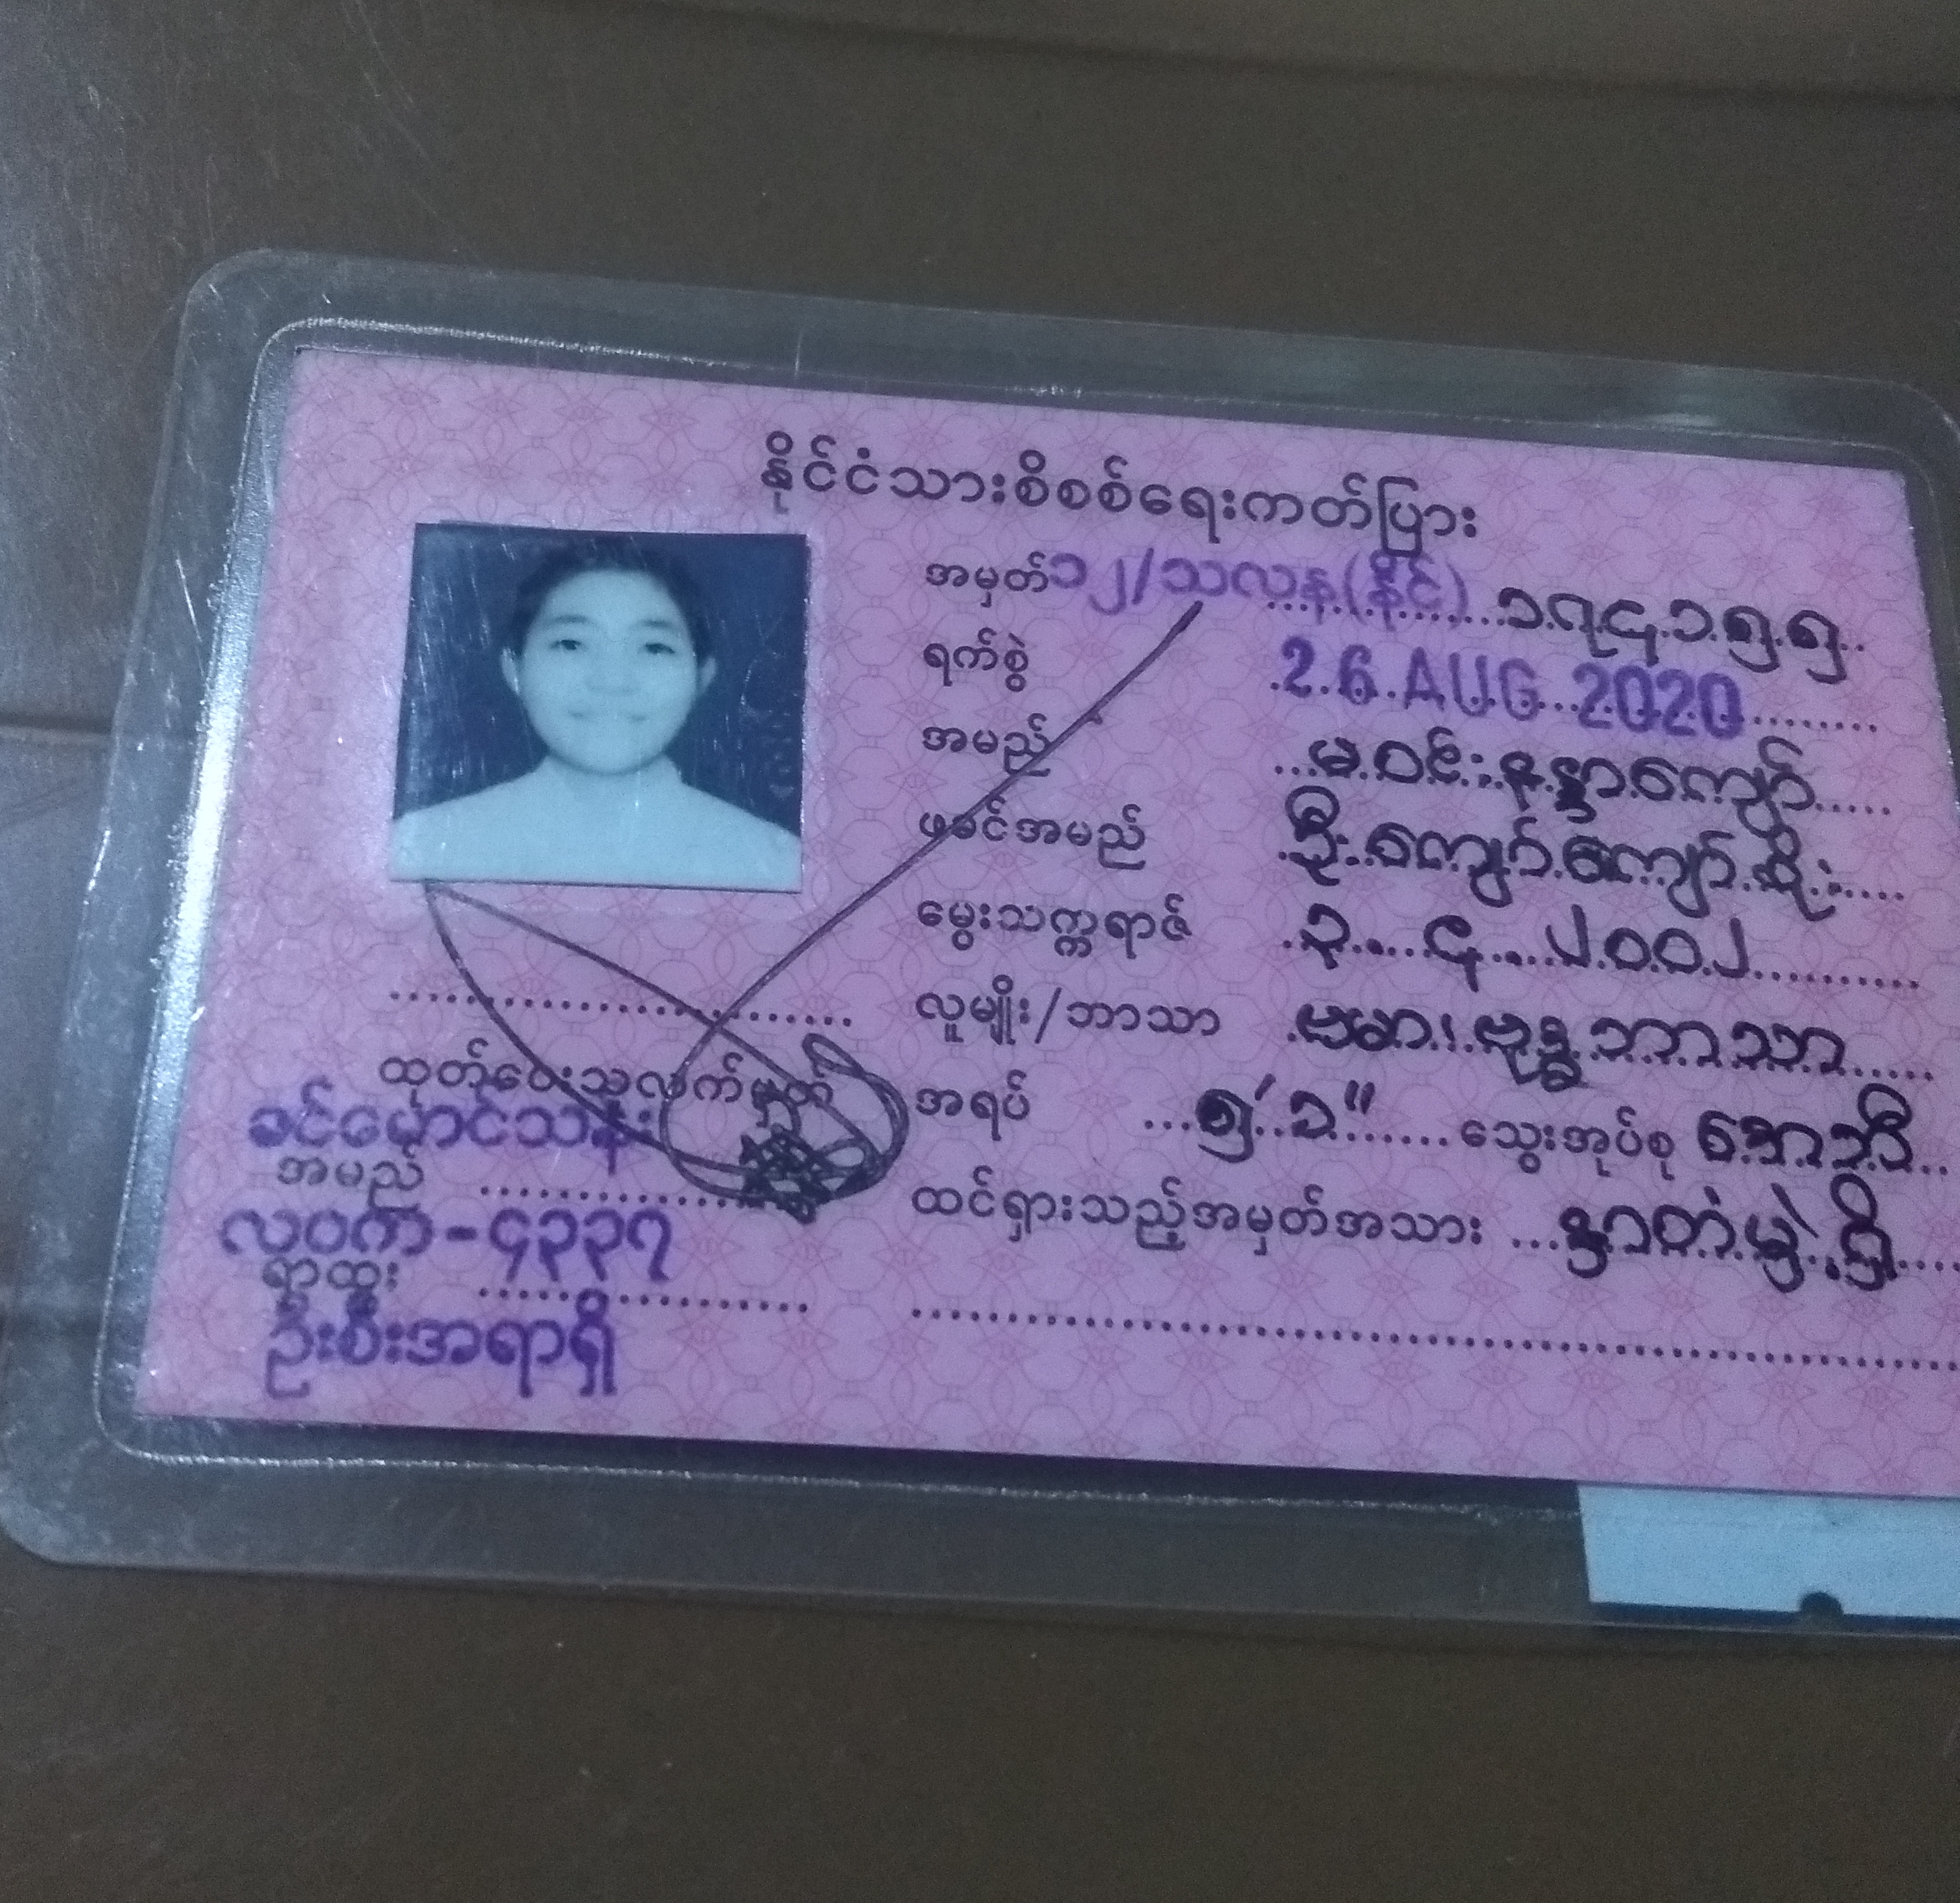 နိုင်ငံသားစိစစ်ရေးကတ်ပြား
အမှတ် ၁၂/သလန(နိုင်) ၁၇၄၁၅၅
ရက်စွဲ 26 AUG 2020
အမည် မဝင်းနန္ဒာကျော်
ဖခင်အမည် ဦးကျော်ကျော်စိုး
မွေးသက္ကရာဇ် ၃.၄.၂၀၀၂
လူမျိုး/ဘာသာ ဗမာ၊ ဗုဒ္ဓဘာသာ
အရပ် ၅' ၁" သွေးအုပ်စု အေဘီ
ထင်ရှားသည့်အမှတ်အသား နှာတံမှဲ့ရှိ
ထုတ်ပေးသူလက်မှတ်
ခင်မောင်သန်း
အမည်
လဝက-၄၃၃၇
ရာထူး
ဦးစီးအရာရှိ